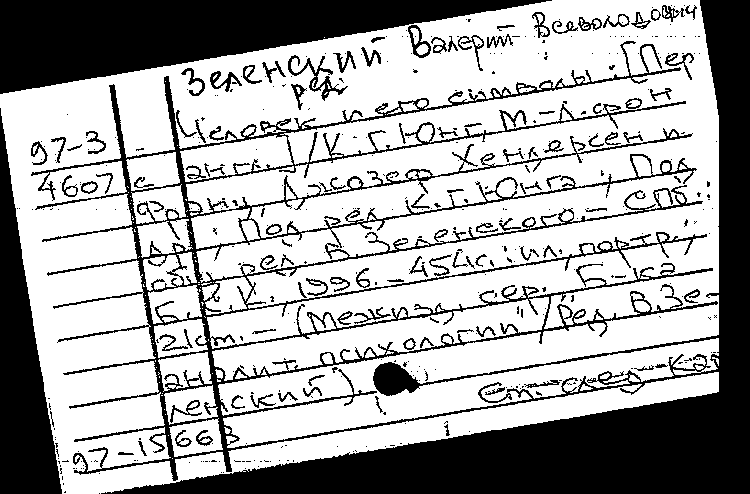 Зеленский Валерий Всеволодович
ред.
97-3 - Человек и его символы : [Пер
4607 с англ.] / К.Г. Юнг, М.-Л. фон
Франц, Джозеф Хендерсен и
др.; Под ред. К.Г. Юнга ; Под
общ. ред. В. Зеленского. - СПб.:
Б.С.К., 1996. - 454с. : ил., портр.;
21см. - (Межизд. сер. "Б-ка
аналит. психологии" / Ред. В. Зе-
ленский).
См. след к-ар
97-15663